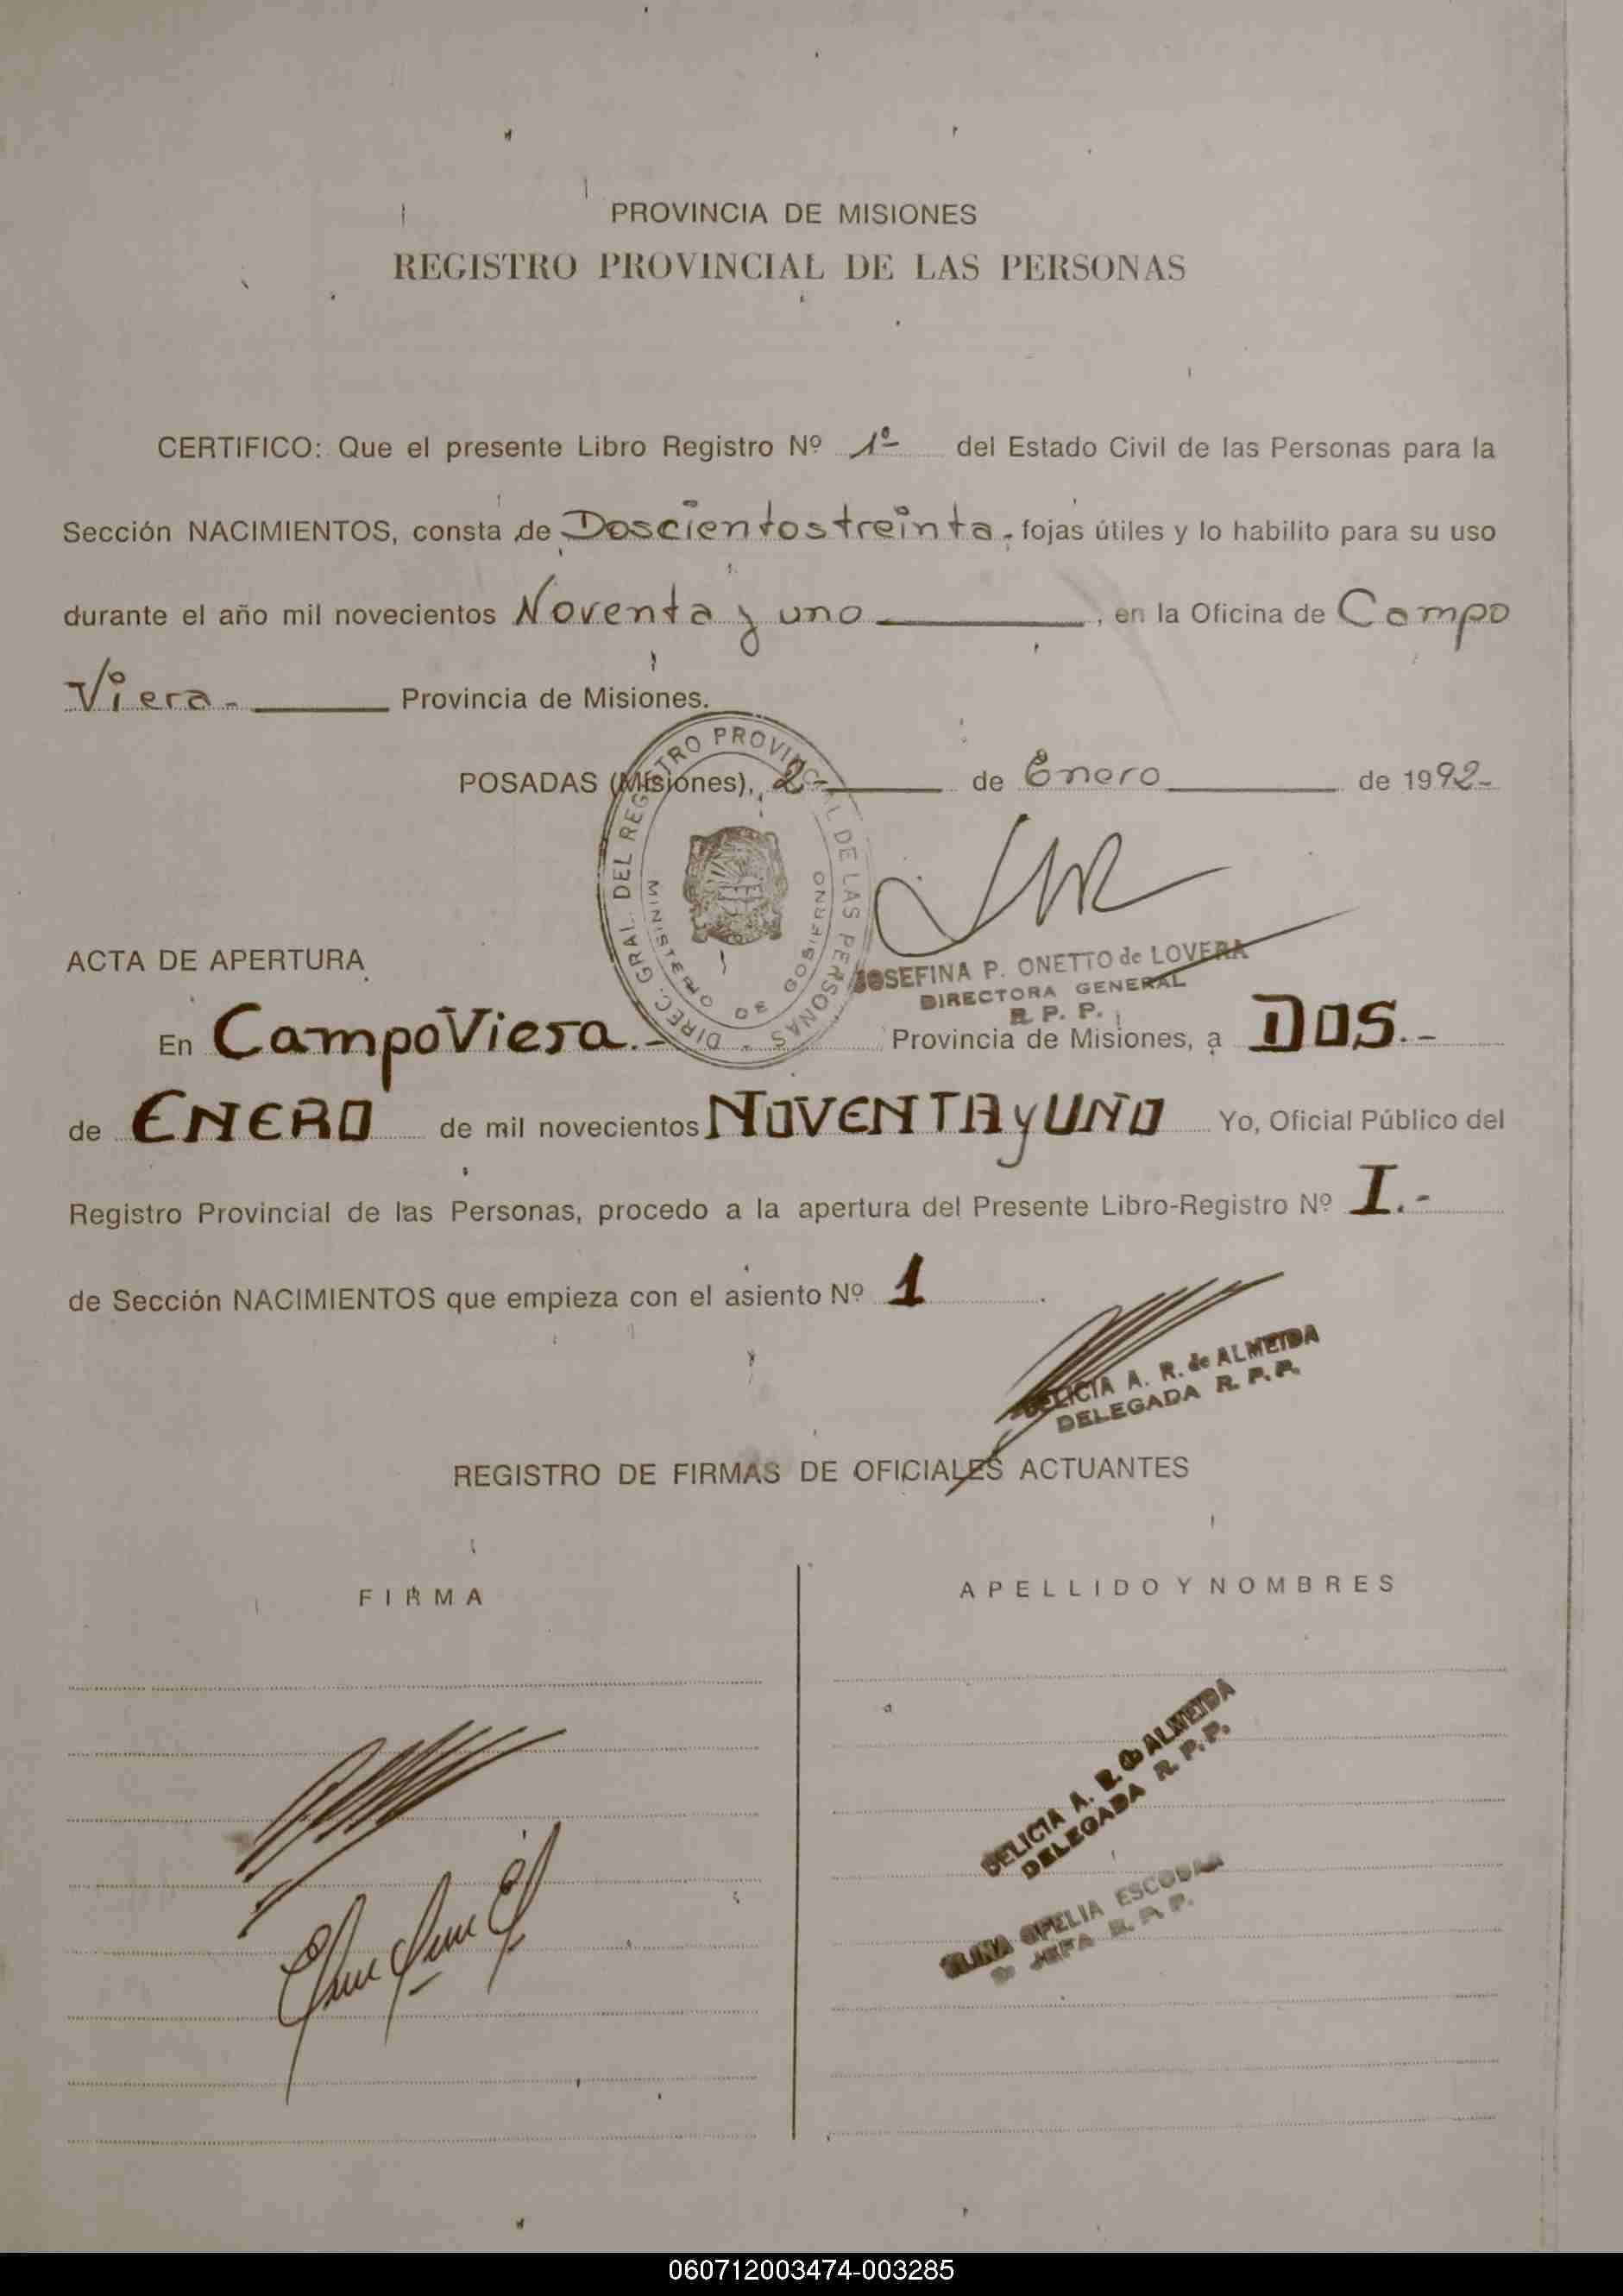 PROVINCIA DE MISIONES
REGISTRO PROVINCIAL DE LAS PERSONAS
CERTIFICO: Que el presente Libro Registro Nº 1º del Estado Civil de las Personas para la
Sección NACIMIENTOS, consta de Doscientos treinta, fojas útiles y lo habilito para su uso
durante el año mil novecientos Noventa y uno, en la Oficina de Campo
Viera- Provincia de Misiones.
POSADAS (Misiones), 2- de Enero de 1992-
DIREC. GRAL. DEL REGISTRO PROVINCIAL DE LAS PERSONAS -
MINISTERIO DE GOBIERNO
JOSEFINA P. ONETTO de LOVERA
DIRECTORA GENERAL
R. P. P.
ACTA DE APERTURA
En Campo Viera.- Provincia de Misiones, a DOS.-
de ENERO de mil novecientos NOVENTA y UNO Yo, Oficial Público del
Registro Provincial de las Personas, procedo a la apertura del Presente Libro-Registro Nº I.-
de Sección NACIMIENTOS que empieza con el asiento Nº 1.
DELICIA A. R. de ALMEIDA
DELEGADA R. P. P.
REGISTRO DE FIRMAS DE OFICIALES ACTUANTES
FIRMA
APELLIDO Y NOMBRES
DELICIA A. R. de ALMEIDA
DELEGADA R. P. P.
OFELIA ESCOBAR
JEFA R. P. P.
060712003474-003285